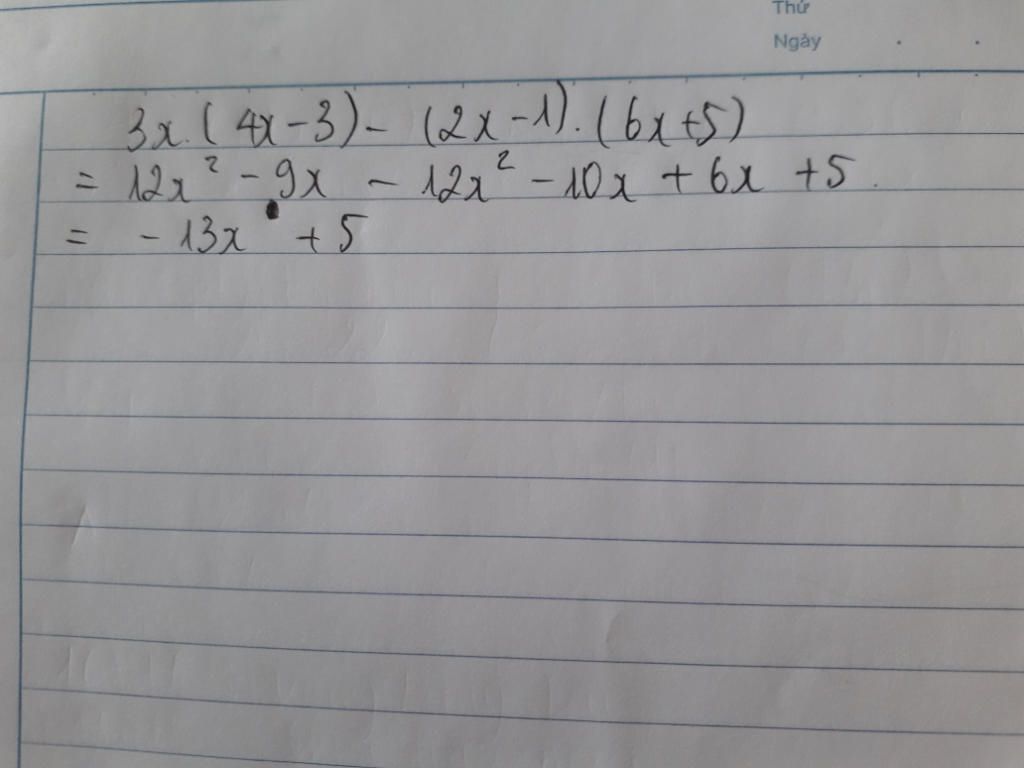 Thứ
Ngày . .
3x.(4x-3)- (2x-1).(6x+5)
= 12x² - 9x - 12x² - 10x + 6x + 5.
= - 13x + 5